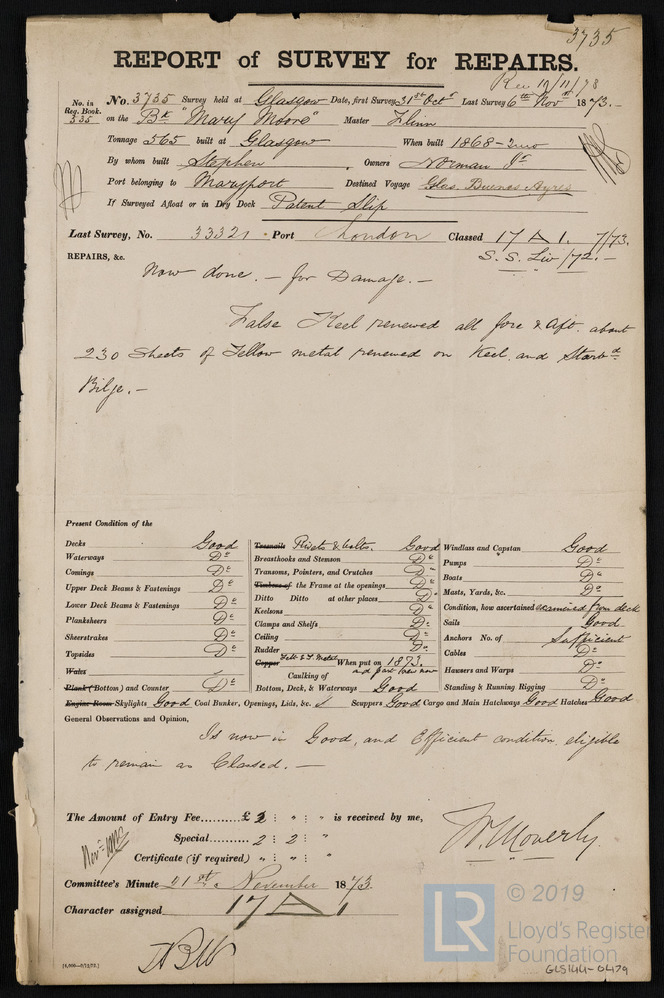 3735
REPORT of SURVEY for REPAIRS.
Rec 19/11/73
No. in Reg. Book. 335
No. 3735 Survey held at Glasgow Date, first Survey 31st Octr Last Survey 6th Novr 1873.-
on the Bk "Mary Moore" Master Flinn
Tonnage 565 built at Glasgow When built 1868-2mo
By whom built Stephen Owners Norman Jr
Port belonging to Maryport Destined Voyage Glas. Buenos Ayres
If Surveyed Afloat or in Dry Dock Patent Slip
Last Survey, No. 33321 Port London Classed 17 A 1. 7/73.
S. S. Liv /72.-
REPAIRS, &c.
Now done. - for Damage. -
False Keel renewed all fore & Aft. about
230 Sheets of Yellow metal renewed on Keel, and Starbd
Bilge. -
Present Condition of the
Decks Good
Waterways Do
Comings Do
Upper Deck Beams & Fastenings Do
Lower Deck Beams & Fastenings Do
Planksheers Do
Sheerstrakes Do
Topsides Do
Wales
Plank (Bottom) and Counter Do
Treenails Rivets & bolts. Good
Breasthooks and Stemson Do
Transoms, Pointers, and Crutches Do
Timbers of the Frame at the openings Do
Ditto Ditto at other places Do
Keelsons Do
Clamps and Shelfs Do
Ceiling Do
Rudder Do
Copper Felt & Y. Metal When put on 1873. and part new now
Caulking of
Bottom, Deck, & Waterways Good
Windlass and Capstan Good
Pumps Do
Boats Do
Masts, Yards, &c. Do
Condition, how ascertained examined from deck
Sails Good
Anchors No. of Sufficient
Cables Do
Hawsers and Warps Do
Standing & Running Rigging Do
Engine Room Skylights Good Coal Bunker, Openings, Lids, &c. Scuppers Good Cargo and Main Hatchways Good Hatches Good
General Observations and Opinion,
Is now in Good, and Efficient condition, eligible
to remain as Classed. -
The Amount of Entry Fee.........£ 2 : " : " is received by me,
Special.......... 2 : 2 : "
Certificate (if required) " : " : "
W. Moverly
Committee's Minute 21st November 1873.
Character assigned 17 A 1
© 2019
LR
Lloyd's Register
Foundation
GLS144-0479